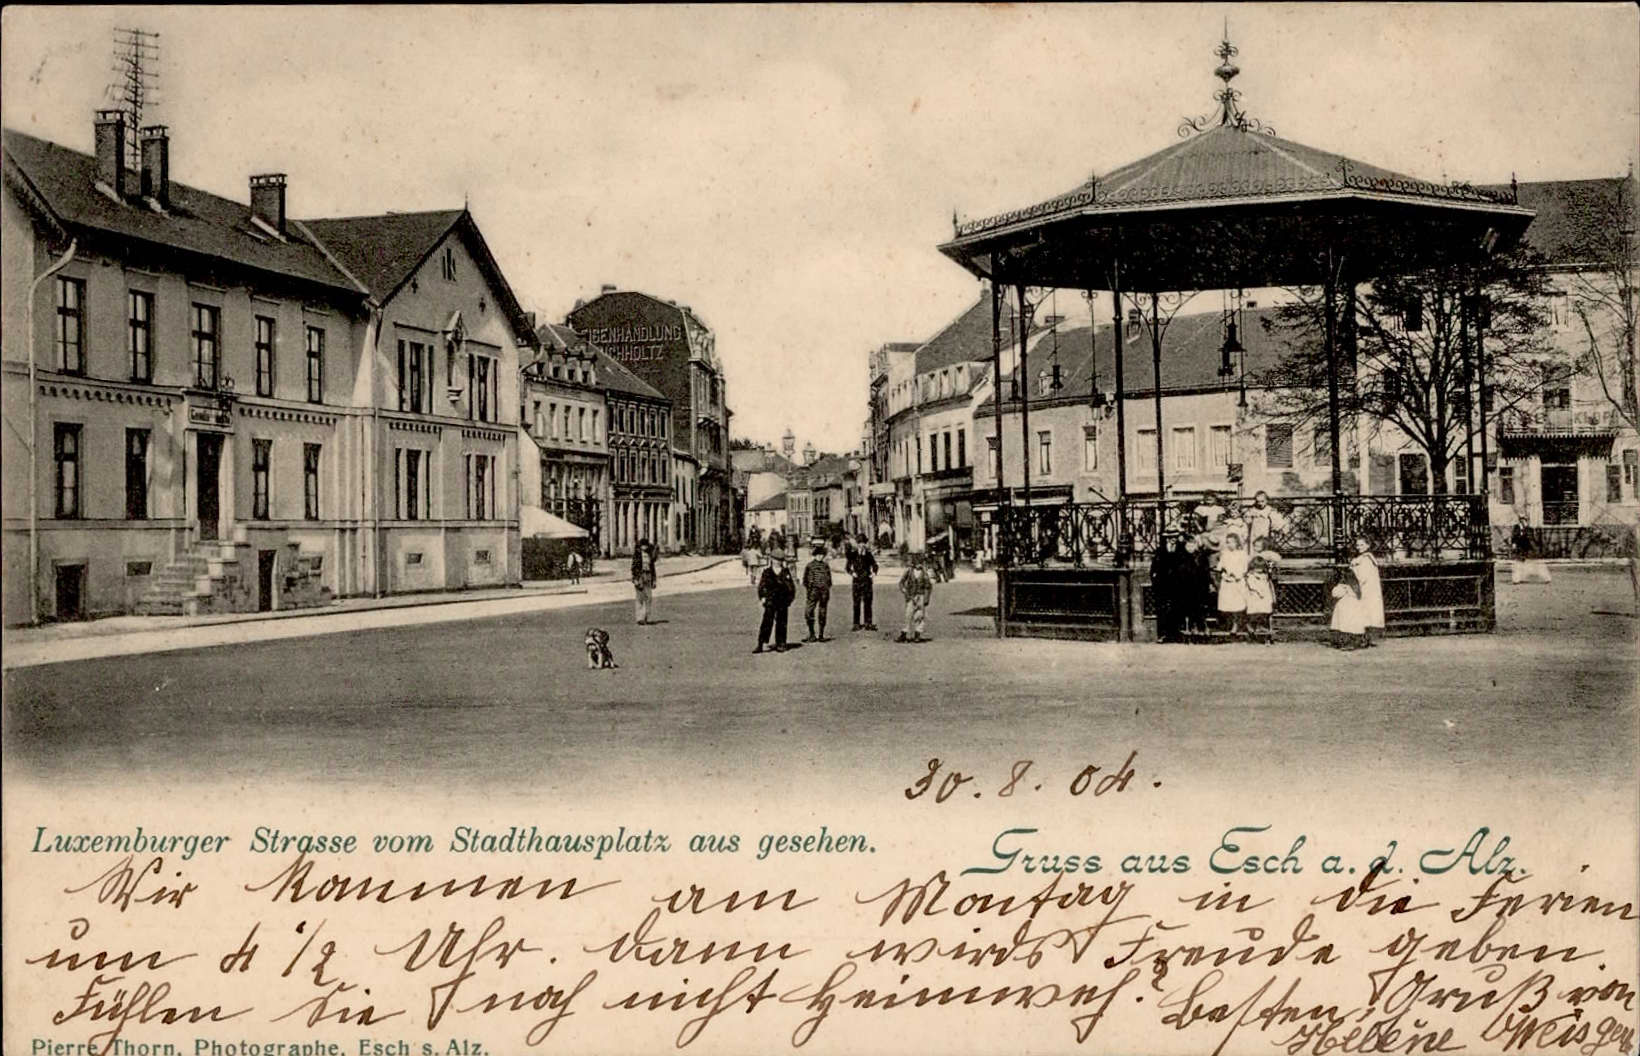 EISENHANDLUNG
BUCHHOLTZ
30. 8. 04.
Luxemburger Strasse vom Stadthausplatz aus gesehen.
Gruss aus Esch a. d. Alz.
Wir kammen am Montag in die Ferien
um 4 1/2 Uhr. dann wirds Freude geben.
Fühlen Sie noch nicht Heimweh? Besten Gruß von
Helene Weis
Pierre Thorn, Photographe, Esch s. Alz.